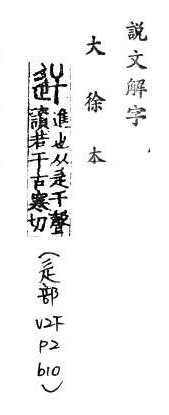 說文解字
大徐本
迀 進也从辵干聲
讀若干古寒切
(辵部 V2下 P2 b10)